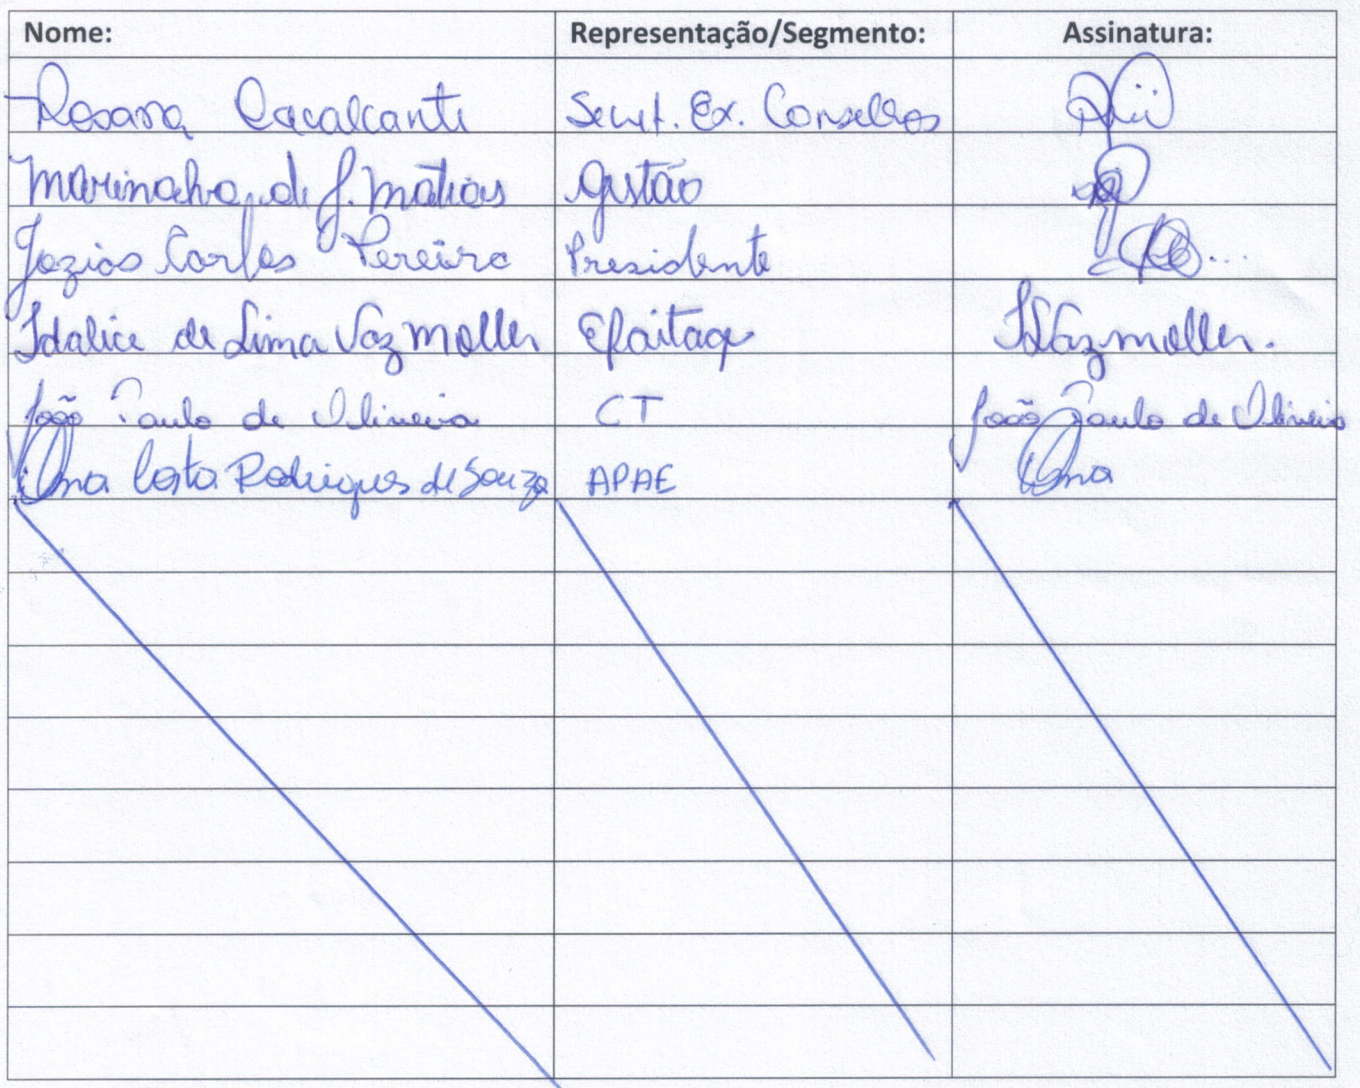 Nome: Representação/Segmento: Assinatura:
Rosana Cavalcanti Secret. Ex. Conselhos
Marinalva de J. Matias Gestão
Jozias Carlos Pereira Presidente
Idalice de Lima Vazmoller Idvazmoller.
João Paulo de Oliveira CT João Paulo de Oliveira
Costa Rodrigues de Souza APAE